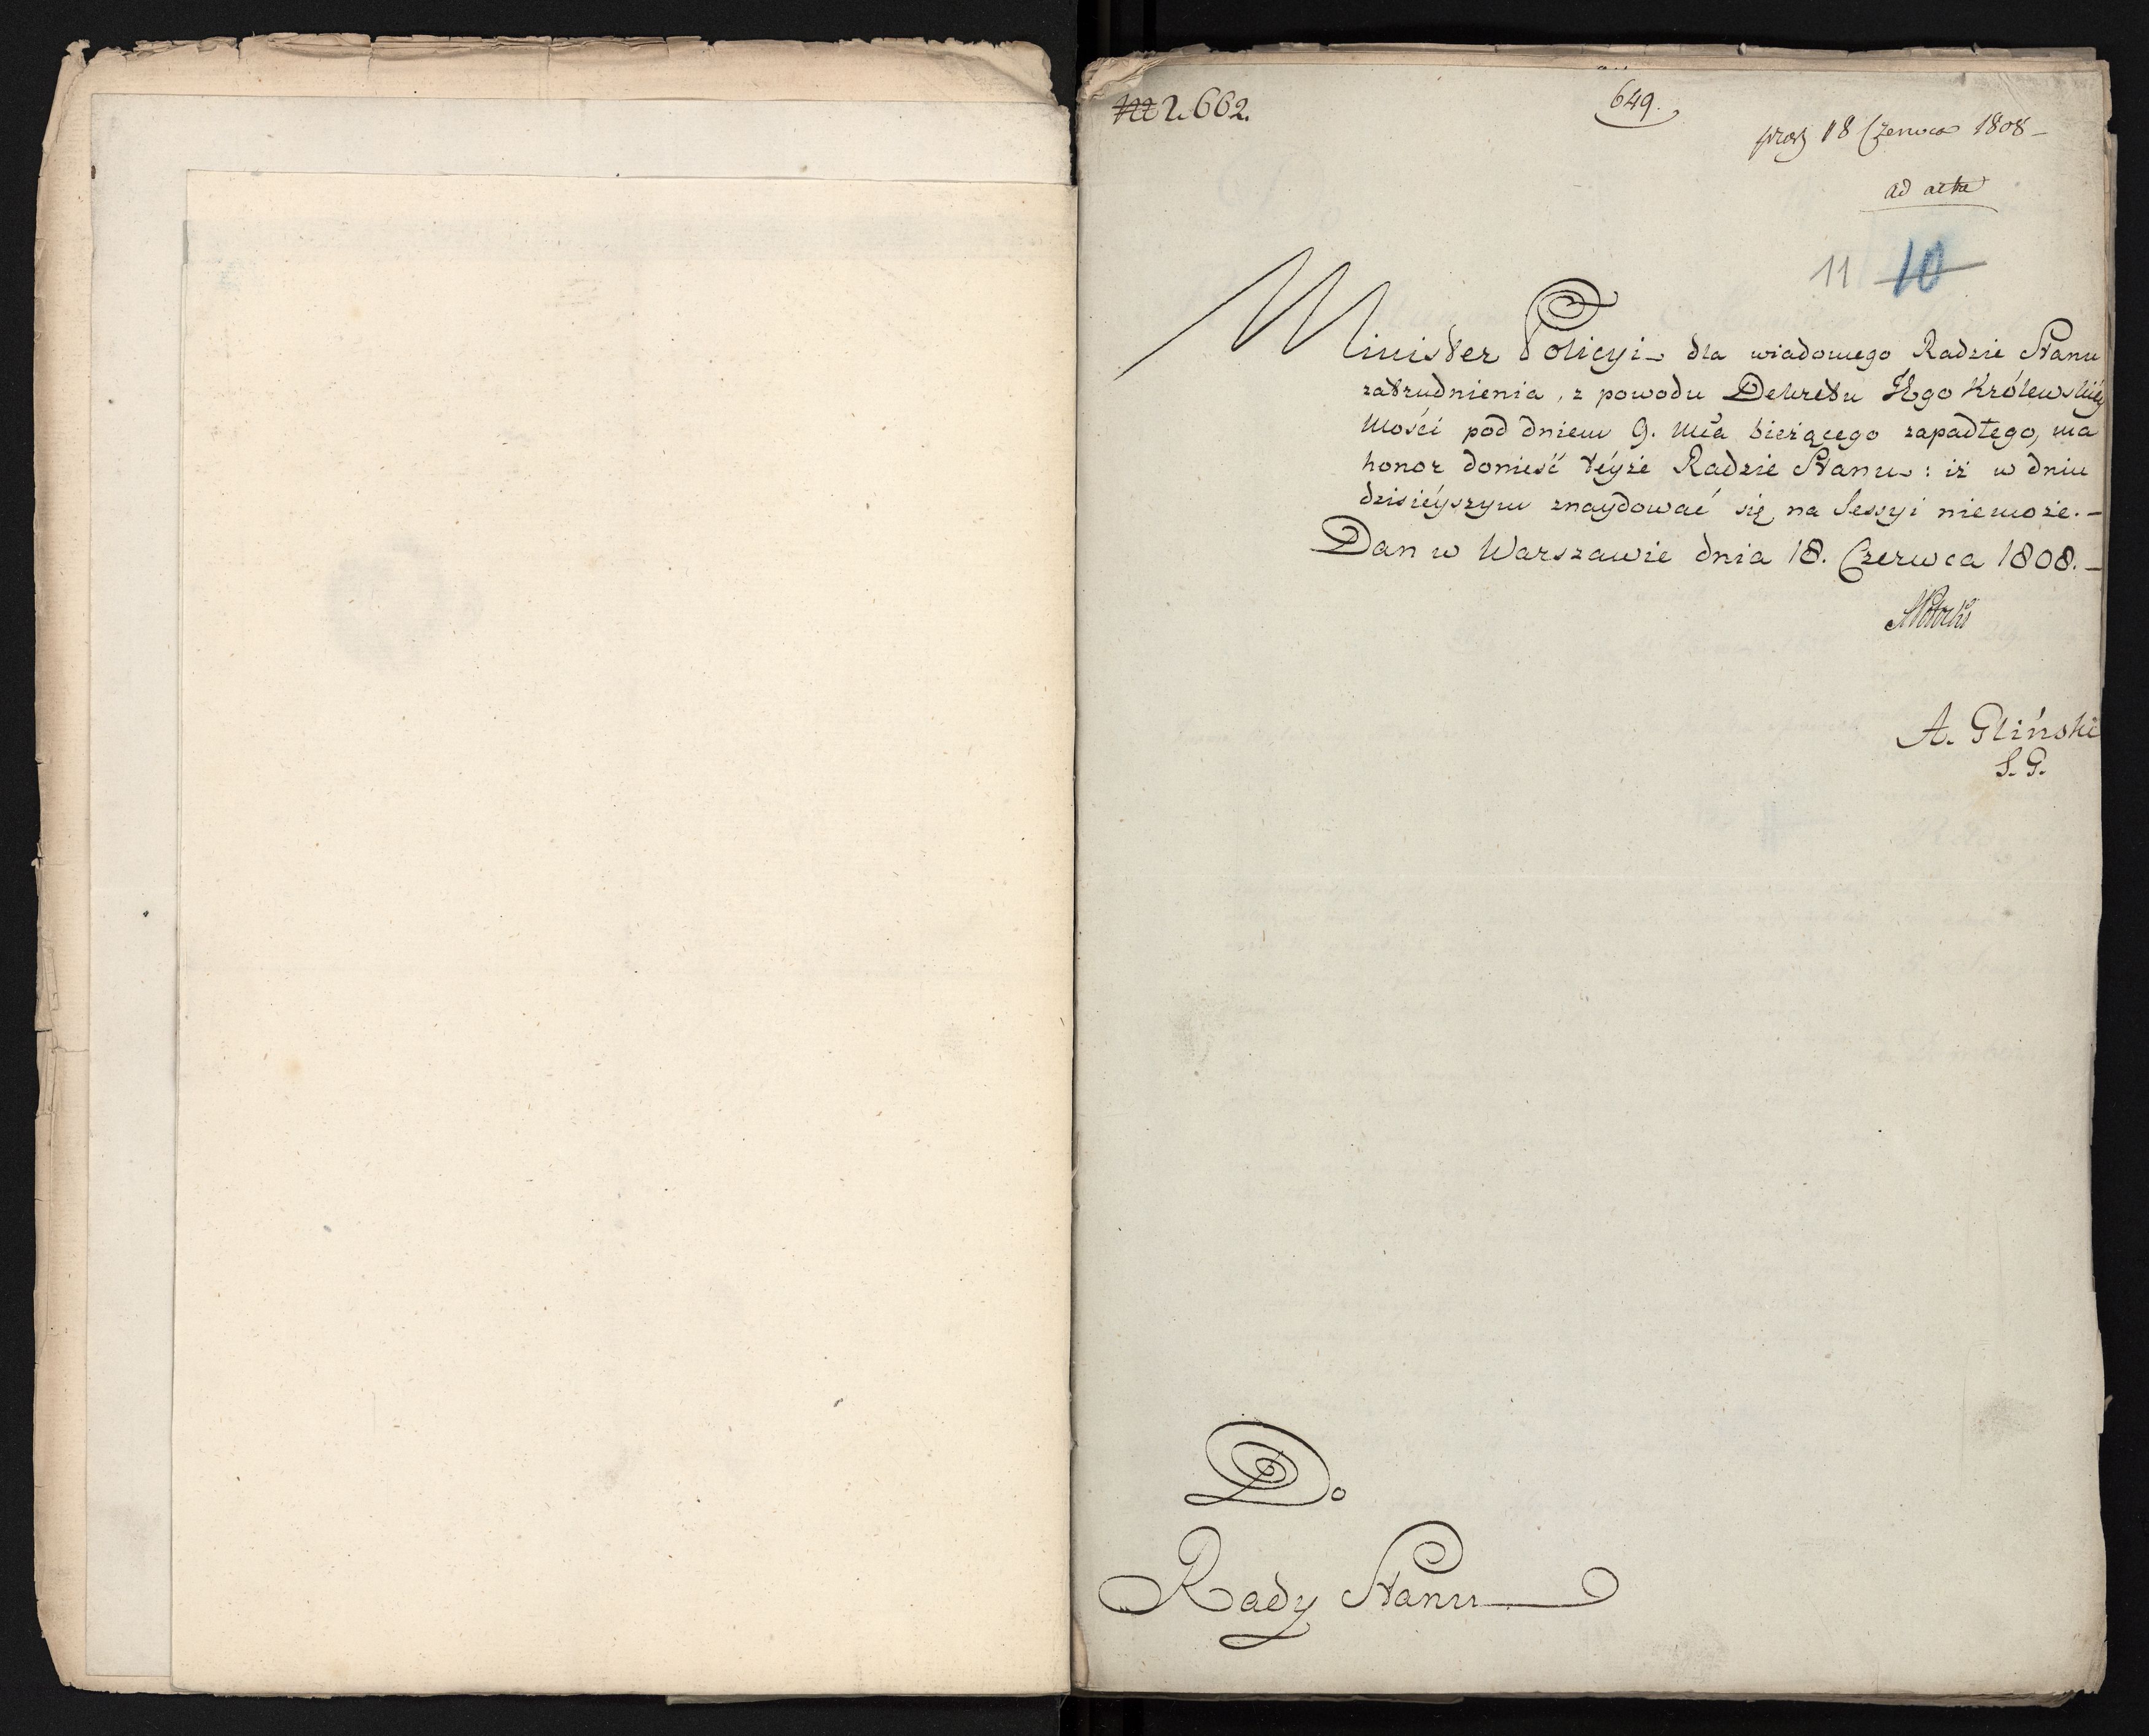 2.662.
649.
prez 18 Czerwca 1808 –
ad acta
11 10
Minister Policyi – dla wiadomego Radzie Stanu
zatrudnienia, z powodu Dekretu JKgo Królewskiéy
Mości pod dniem 9. Mca bieżącego zapadłego, ma
honor donieść téyże Radzie Stanu: iż w dniu
dzisiéyszym znaydować się na Sessyi niemoże. –
Dan w Warszawie dnia 18. Czerwca 1808. –
A. Gliński
S. G.
Do
Rady Stanu